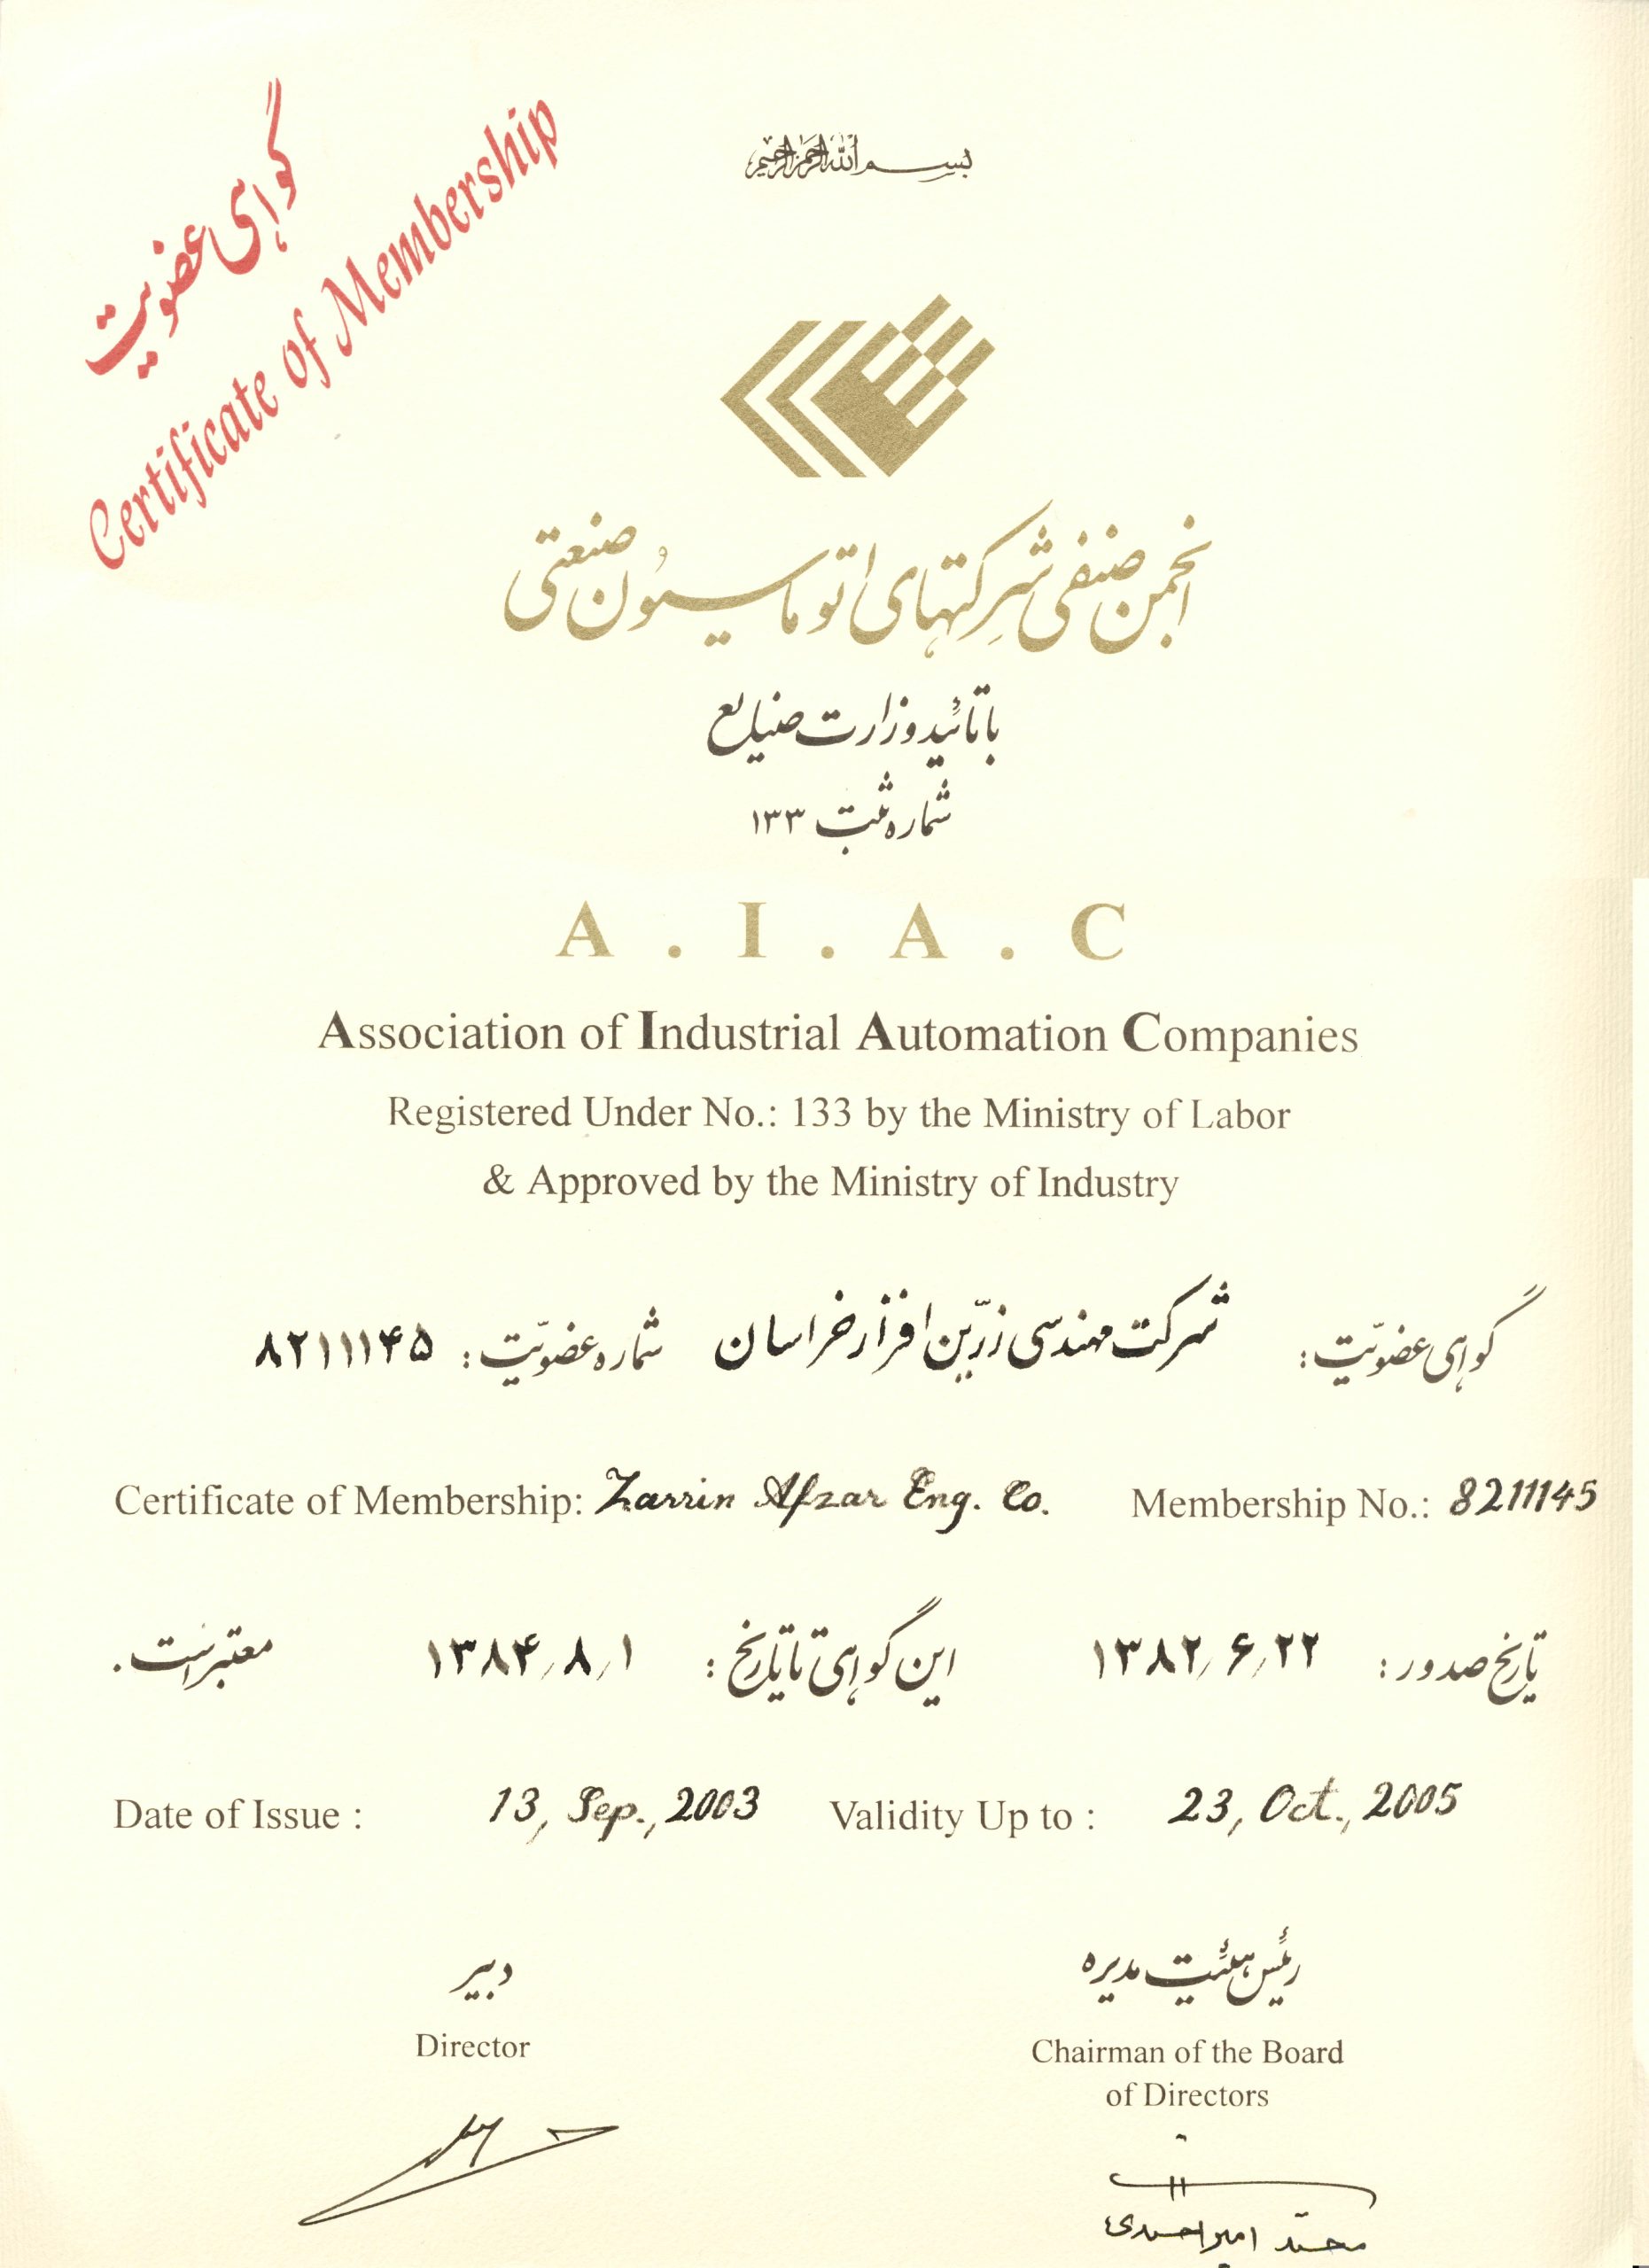 گواهی عضویت
Certificate of Membership
بسم الله الرحمن الرحیم
انجمن صنفی شرکتهای اتوماسیون صنعتی
با تائید وزارت صنایع
شماره ثبت ۱۳۳
A . I . A . C
Association of Industrial Automation Companies
Registered Under No.: 133 by the Ministry of Labor
& Approved by the Ministry of Industry
گواهی عضویّت: شرکت مهندسی زرّین افزار خراسان شماره عضویّت: ۸۲۱۱۱۴۵
Certificate of Membership: Zarrin Afzar Eng. Co. Membership No.: 8211145
تاریخ صدور: ۱۳۸۲٫۶٫۲۲ این گواهی تا تاریخ: ۱۳۸۴٫۸٫۱ معتبر است.
Date of Issue : 13, Sep., 2003 Validity Up to : 23, Oct., 2005
دبیر رئیس هیئت مدیره
Director Chairman of the Board
of Directors
محمّد امیراحمدی